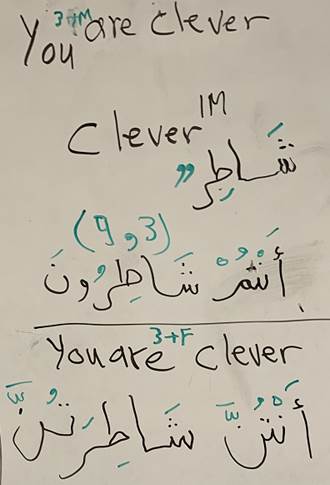 3+M
You are clever
Clever 1M
شَاطِرٌ
(9 و 3)
أَنْتُمْ شَاطِرُونَ
3+F
You are clever
أَنْتُنَّ شَاطِرَتُنَّ